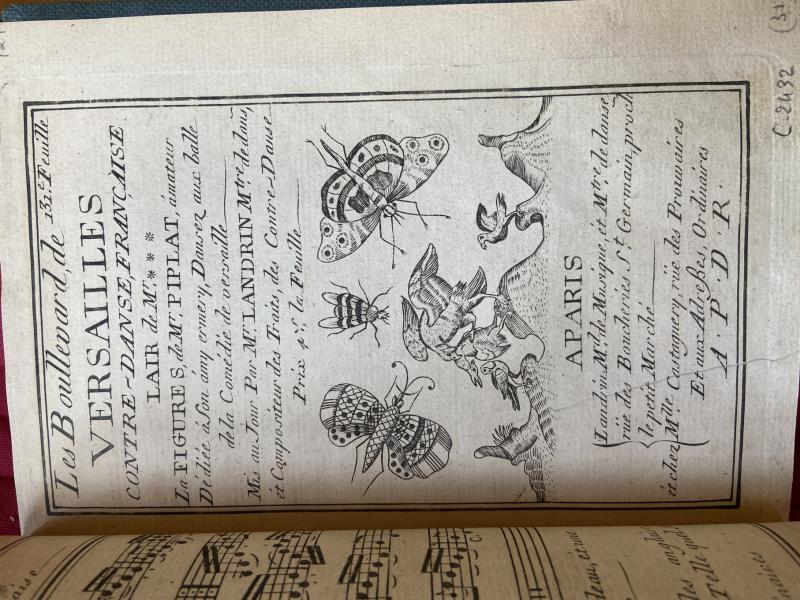 Les Boullevard, de 131.e Feuille
VERSAILLES
CONTRE-DANSE, FRANÇAISE.
LAIR de Mr. ***
La FIGURES, de Mr. PIPLAT, ámateur
Dédiée à Son ámy ernery, Dansez aux balle
de la Comédie de versaille
Mis au Jour Par Mr. LANDRIN Mtre de dans,
et Compositeur des Traits des Contre-Danse
Prix 4 s. la Feuille
A PARIS
Landrin, Md. de Musique, et Mtre de danse
rüe des Boucheries St. Germain, proch
le petit Marché
et chez Mlle Castagnery, rüe des Prouvaires
Et aux Adreßes, Ordinaires
A. P. D. R.
C-2432
(31
aise
leau, et vue
les anglais
Telle qu'il